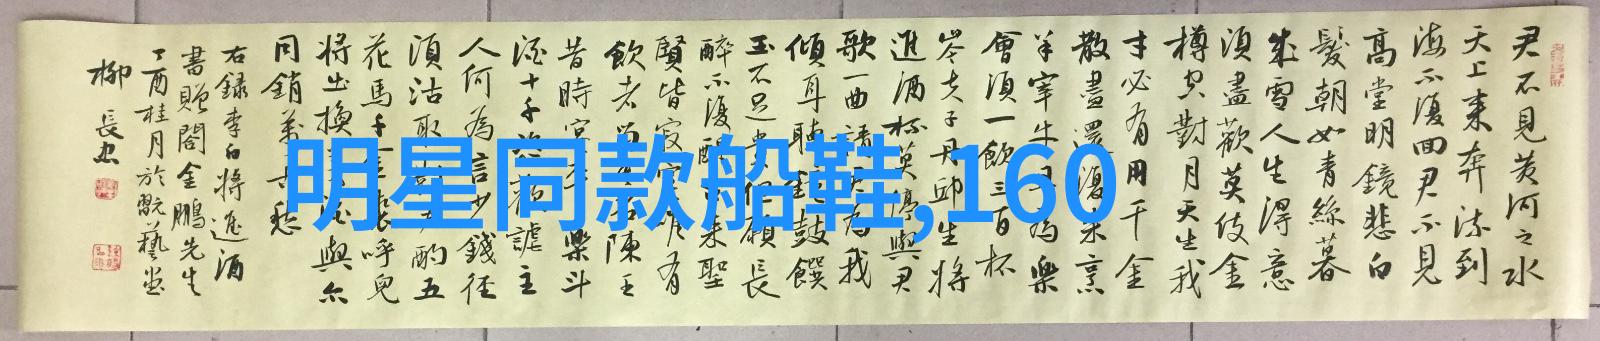 君不見黃河之水
天上来奔流到
海不復回君不見
高堂明鏡悲白
髮朝如青絲暮
成雪人生得意
須盡歡莫使金
樽空對月天生我
才必有用千金
散盡還復来烹
羊宰牛且為樂
會須一飲三百杯
岑夫子丹邱生將
進酒杯莫停與君
歌一曲請君為我
傾耳聽鼓饌
玉不足貴但願長
醉不復醒古来聖
賢皆寂寞唯有
飲者留其名陳王
昔時宴平樂斗
酒十千恣歡謔主
人何為言少錢径
須沽取對君酌五
花馬千金裘呼兒
將出換美酒與尔
同銷萬古愁
右録李白將進酒
書贈閤金鵬先生
丁酉桂月於翫藝堂
柳長忠
明星同款船鞋,160